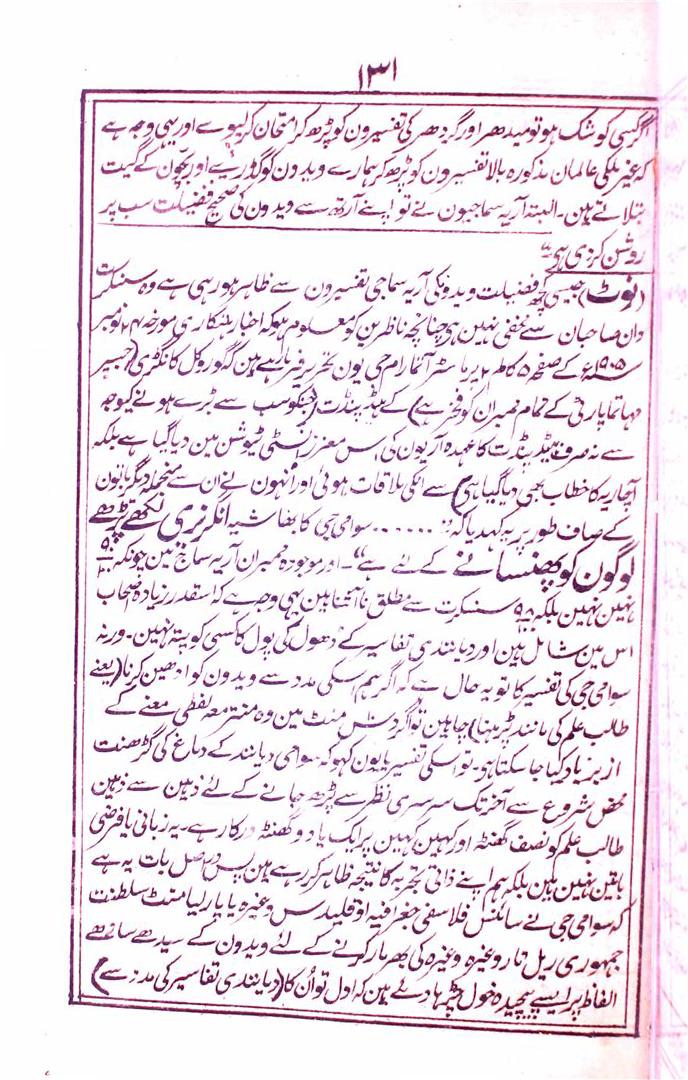 ۱۳۱
اگر کسی کو شک ہو تو میدھر اور گردھر کی تفسیرون کو پڑھ کر امتحان کر لیوے اور یہی وجہ ہے
کہ غیر ملکی عالمان مذکورہ بالا تفسیرون کو پڑھ کر ہمارے ویدون کو گڈریے اور بچون کے گیت
بتلاتے ہین۔ البتہ آریہ سماجیون نے تو اپنے آرتھ سے ویدون کی صحیح فضیلت سب پر
روشن کر دی ہے"
(نوٹ) جیسی کچھ فضیلت ویدونکی آریہ سماجی تفسیرون سے ظاہر ہو رہی ہے وہ سنسکرت
دان صاحبان سے مخفی نہین ہی چنانچہ ناظرین کو معلوم ہو کہ اخبار ہتکاری مورخہ ۲۴ نومبر
۱۹۰۵ء کے صفحہ ۵ کالم پر ماسٹر آتمارام جی یون تحریر فرمارہے ہین کہ گوروکل کانگڑی (جسپر
مہاتما پارٹی کے تمام ممبران کو فخر ہے) کے ہیڈ پنڈت (جنکو سب سے بڑے ہونے کیوجہ
سے نہ صرف ہیڈ پنڈت کا عہدہ آریون کی اس معزز انسٹی ٹیوشن مین دیا گیا ہے بلکہ
آچاریہ کا خطاب بھی دیا گیا ہی) سے انکی ملاقات ہوئی اور انہون نے ان سے منجملہ دیگر باتون
کے صاف طور پر یہ کہدیا کہ "...... سوامی جی کا بھاشیہ انگریزی لکھے پڑھے
لوگون کو پھنسانے کے لئے ہے"۔ اور موجودہ ممبران آریہ سماج مین چونکہ ۹۵
نہین نہین بلکہ ۹۸ سنسکرت سے مطلق نا آشنا ہین یہی وجہ ہے کہ اسقدر زیادہ اصحاب
اس مین شامل ہین اور دیانندی تفاسیر کے ڈھول کی پول کا کسی کو پتہ نہین۔ ورنہ
سوامی جی کی تفسیر کا تو یہ حال ہے کہ اگر ہم اسکی مدد سے ویدون کو ادھین کرنا (یعنے
طالب علم کی مانند پڑہنا) چاہین تو اگر دس منٹ مین وہ منتر معہ لفظی معنے کے
ازبر یاد کیا جا سکتا ہو۔ تو اسکی تفسیر یا یون کہو کہ سوامی دیانند کے دماغ کی گڑھنت
محض شروع سے آخر تک سرسری نظر سے پڑھ جانے کے لئے ذہین سے ذہین
طالب علم کو نصف گھنٹہ اور کہین کہین پر ایک یا دو گھنٹہ درکار ہے۔ یہ زبانی یا فرضی
باتین نہین ہین بلکہ ہم اپنے ذاتی تجربہ کا نتیجہ ظاہر کر رہے ہین پس دراصل بات یہ ہے
کہ سوامی جی نے سائنس فلاسفی جغرافیہ اوقلیدس وغیرہ یا پارلیامنٹ سلطنت
جمہوری ریل تار وغیرہ وغیرہ کی بھرمار کرنے کے لئے ویدون کے سیدھے سادھے
الفاظ پر ایسے پیچیدہ خول چڑہا دئے ہین کہ اول تو اُن کا (دیانندی تفاسیر کی مدد سے)